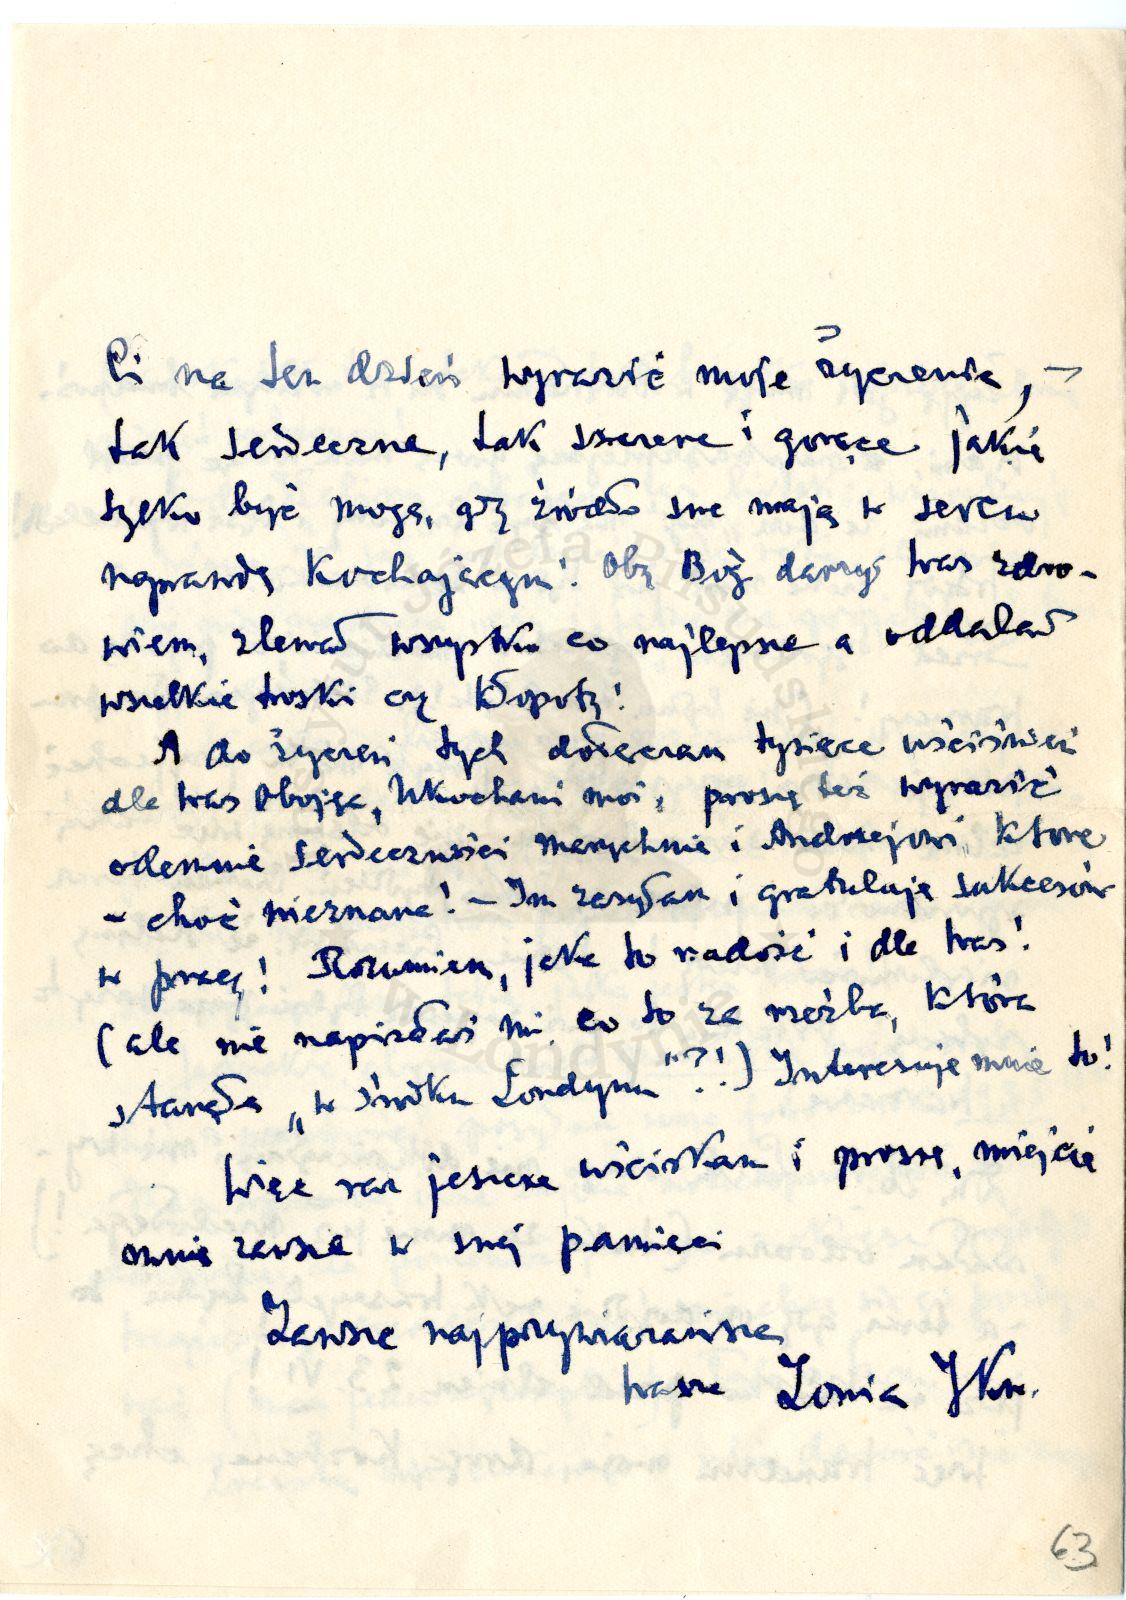 Ci na ten dzień wyrazić moje życzenia, –
tak serdeczne, tak szczere i gorące jakie
tylko być mogą, gdy źródło swe mają w sercu
naprawdę kochającym! Oby Bóg darzył Was zdro-
wiem, zlewał wszystko co najlepsze a oddalał
wszelkie troski czy kłopoty!
A do życzeń tych dołączam tysiące uściśnień
dla Was Obojga, Ukochani moi, proszę też wyrazić
odemnie serdeczności Marychnie i Andrzejowi, które
– choć nieznana! – Im zasyłam i gratuluję sukcesów
w pracy! Rozumiem, jaka to radość i dla Was!
(ale nie napisałaś mi, co to za rzeźba, która
stanęła „w środku Londynu"?!) Interesuje mnie to!
Więc raz jeszcze uściskam i proszę, miejcie
mnie zawsze w swej pamięci
Zawsze najprzywiązańsza
Wasza Zonia
63
Józefa Piłsudskiego
w Londynie